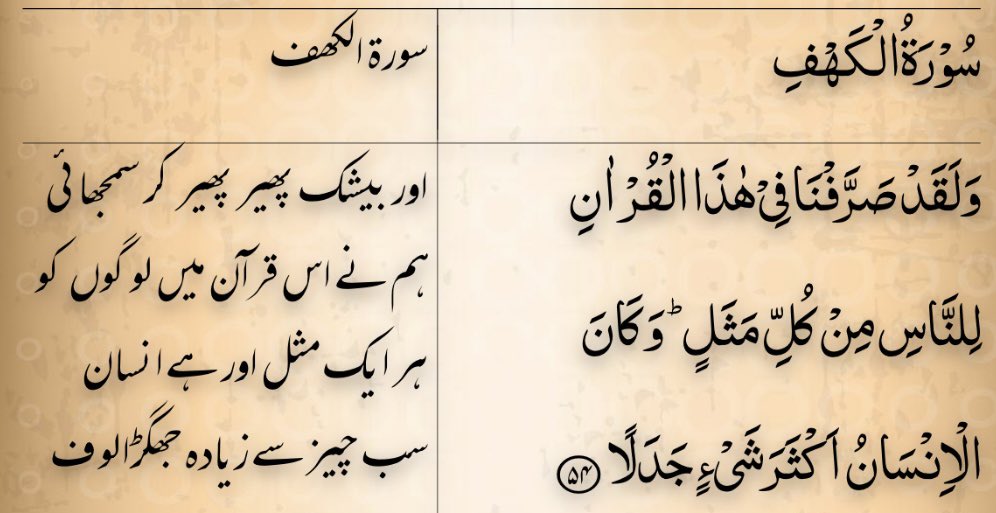 سُوْرَةُ الْكَهْفِ
وَلَقَدْ صَرَّفْنَا فِیْ هٰذَا الْقُرْاٰنِ
لِلنَّاسِ مِنْ كُلِّ مَثَلٍ ؕ وَكَانَ
الْاِنْسَانُ اَكْثَرَ شَیْءٍ جَدَلًا ۵۴
سورۃ الکھف
اور بیشک پھیر پھیر کر سمجھائی
ہم نے اس قرآن میں لوگوں کو
ہر ایک مثل اور ہے انسان
سب چیز سے زیادہ جھگڑالو ف